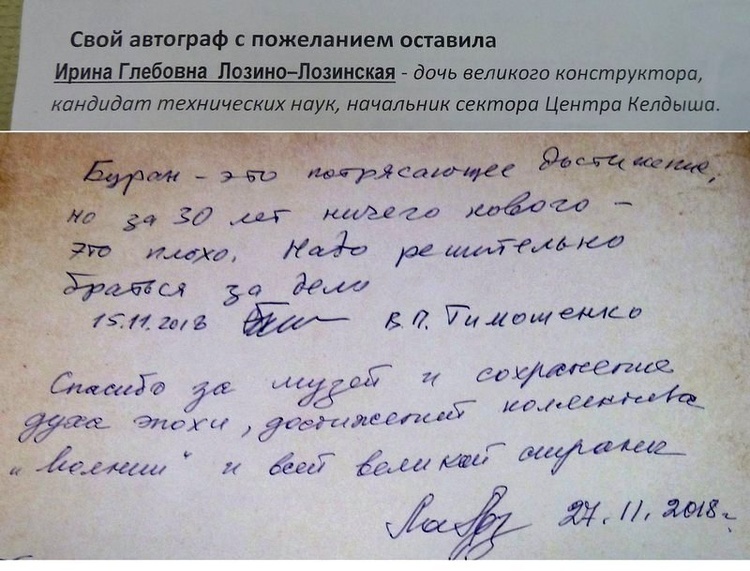 Свой автограф с пожеланием оставила
Ирина Глебовна Лозино–Лозинская - дочь великого конструктора,
кандидат технических наук, начальник сектора Центра Келдыша.
Буран - это потрясающее достижение,
но за 30 лет ничего нового -
это плохо. Надо решительно
браться за дело
15.11.2018 В.П. Тимошенко
Спасибо за музей и сохранение
духа эпохи, достижений коллектива
"Молнии" и всей великой страны
27.11.2018г.